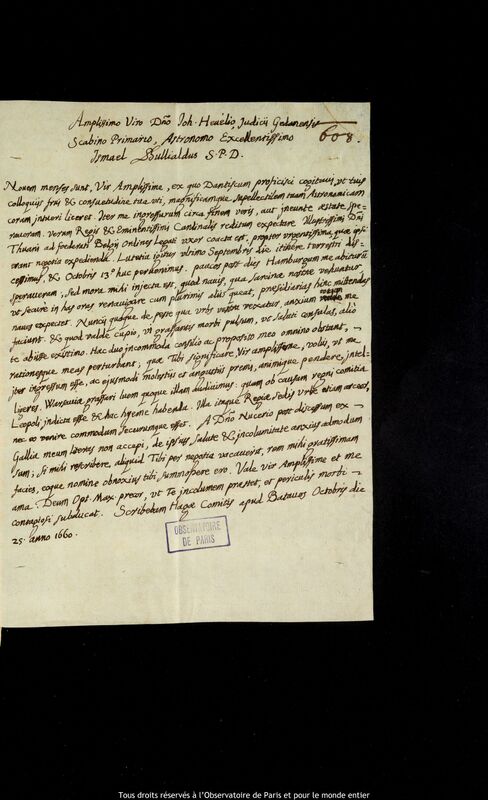 Amplissimo Viro Dño Joh. Hevelio, Judicij Gedanensis
608.
Scabino Primario, Astronomo Excellentissimo
Ismael Bullialdus S.P.D.
Novem menses sunt, Vir Amplissime, ex quo Dantiscum proficisci cogitavi, ut tuis
colloquijs frui & consuetudine tua uti, magnificamque supellectilem tuam Astronomicam
coram intueri liceret. Iter me ingressurum circa finem veris, aut ineunte æstate spe-
raveram. verum Regis & Eminentissimi Cardinalis reditum expectare Illustrissimus Dñs
Thuanus ad fœderati Belgij Ordines Legati uxor coacta est, propter urgentissima quæ ipsi
erant negotia expedienda. Lutetia igitur ultimo Septembris die itinere terrestri dis-
cessimus, & Octobris 13ª huc pervenimus. paucos post dies Hamburgum me abiturum
speraveram; sed mora mihi injecta est, quod navis, qua sarcinæ nostræ vehuntur
ut secure in has oras renavigare cum plurimis alijs queat, præsidiarias hinc mittendas
naves expectet. Nuncij quoque de peste qua urbs vestra vexatur, anxium me
faciunt, & quod valde cupio, vi grassantis morbi pulsum, ut saluti consulas, alio
te abijsse existimo. Hæc duo incommoda consilio ac proposito meo omnino obstant,
rationesque meas perturbant, quæ Tibi significare Vir Amplissime, volui, ut me
iter ingressum esse, ac ejusmodi molestijs et angustijs premi, animique pendere, intel-
ligeres. Warsaviæ grassari luem quoque illam audivimus: quam ob causam regni comitia
Leopoli indicta esse & hac hyeme habenda. Illa itaque Regiæ sedis urbe etiam arceor,
nec eo venire commodum securumque esset. A Dño Nucerio post discessum ex
Gallia meum literas non accepi, de ipsius salute & incolumitate anxius admodum
sum; si mihi rescribere, aliquid Tibi per negotia vacaverit, rem mihi gratissimam
facies, eoque nomine obnoxius tibi summopere ero. Vale Vir Amplissime et me
ama. Deum Opt. Max. precor, ut Te incolumem præstet, et periculis morbi
contagiosi subducat. Scribebam Hagæ Comitis apud Batavos Octobris die
25. anno 1660.
OBSERVATOIRE
DE PARIS
Tous droits réservés à l'Observatoire de Paris et pour le monde entier